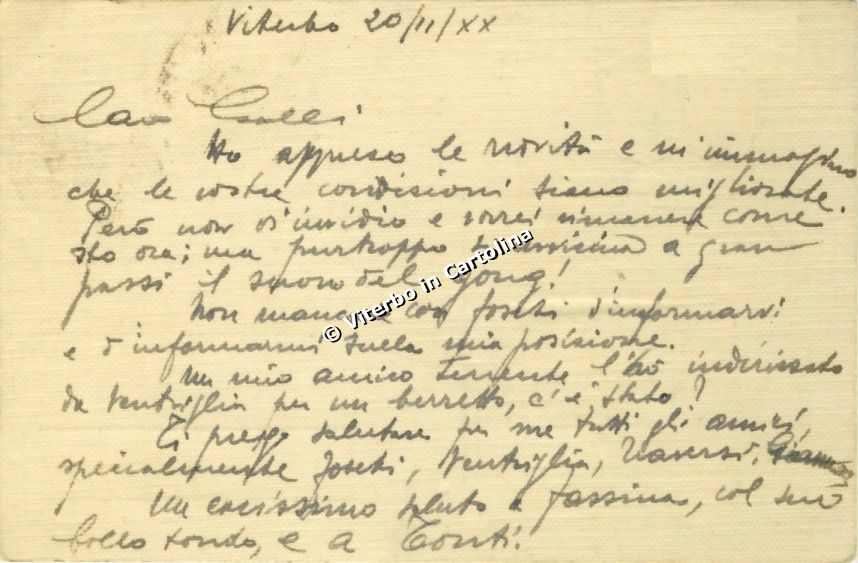 Viterbo 20/11/XX
Caro Galli
Ho appreso le novità e m'immagino
che le vostre condizioni siano migliorate.
Però non v'invidio e vorrei rimanere come
sto ora; ma purtroppo s'avvicina a gran
passi il suono del gong!
Non manc con Foschi d'informarvi
e d'informarmi sulla mia posizione.
Un mio amico tenente l'ho indirizzato
da Ventriglia per un berretto, c'è stato?
Ti prego salutare per me tutti gli amici,
specialmente Foschi, Ventriglia, Traversi,
Un carissimo saluto a Fassina, col suo
bollo tondo, e a Tonti.
© Viterbo in Cartolina